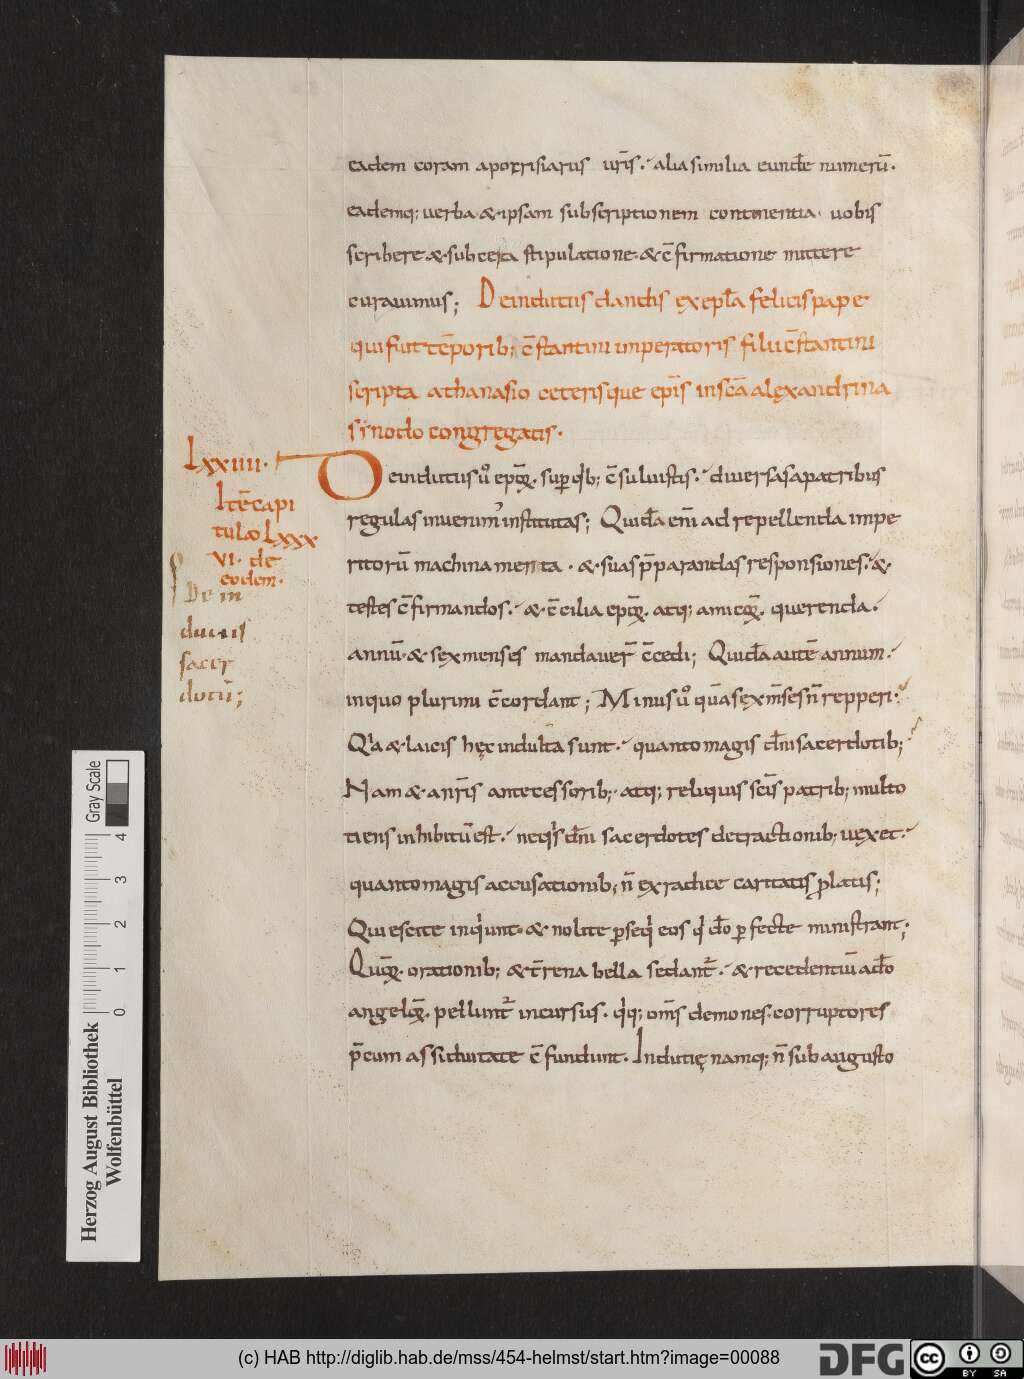 eadem coram apocrisiarus uris. alia similia eunde numerū.
eademq; uerba & ipsam subscriptionem continentia. uobis
scribere & subcerta stipulatione & c̄firmatione mittere
curauimus; De indutiis dandis ex epla felicis pape
qui fuit tēporib; c̄stantini imperatoris filii c̄stantini
scripta athanasio ceterisque epis in sc̄a alexandrina
sinodo congregatis.
Lxxiiii.
Itē capi
tulo Lxxx
VI. de
eodem.
De in
duciis
sacer
dotū;
De indutiis u° epoꝝ. sup q̇b; c̄suluistis. diuersas a patribus
regulas inuenim' institutas; Quidā eni ad repellenda impe
ritorū machinamenta. & suas p̄parandas responsiones. &
testes c̄firmandos. & c̄cilia epoꝝ. atq; amicoꝝ. querenda.
annū & sex menses mandauer̄ c̄cedi; Quidā autē annum.
in quo plurimi c̄cordant; Minus u° quā sex m̄ses n̄ repperi.
Q'a & laicis hęc indulta sunt. quanto magis dn̄i sacerdotib;
Nam & a nr̄is antecessorib; atq; reliquis sc̄is patrib; multo
tiens inhibitū est. ne q's dn̄i sacerdotes detractionib; uexet.
quanto magis accusationib; n̄ ex radice caritatis platis;
Quiescite inq'unt & nolite p̱seq' eos q' dō p̱fecte ministrant;
Quoꝝ. orationib; & t̄rena bella sedant᷑. & recedentiū a dō
angeloꝝ. pellunt᷑ incursus. q'q; om̄s demones corruptores
p̄cum assiduitate c̄fundunt. Indutię namq; n̄ sub augusto
Gray Scale
4
3
2
1
0
Herzog August Bibliothek
Wolfenbüttel
(c) HAB http://diglib.hab.de/mss/454-helmst/start.htm?image=00088
DFG
cc BY SA